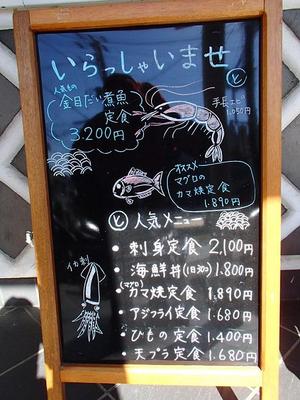 いらっしゃいませ
と
人気もの
金目だい煮魚
定食
3,200円
手長エビ
1,050円
オススメ
マグロの
カマ焼定食
1,890円
と 人気メニュー
イカ刺
・刺身定食 2,100円
・海鮮丼(1日30) 1,800円
・(マグロ)カマ焼定食 1,890円
・アジフライ定食 1,680円
・ひもの定食 1,400円
・天プラ定食 1,680円